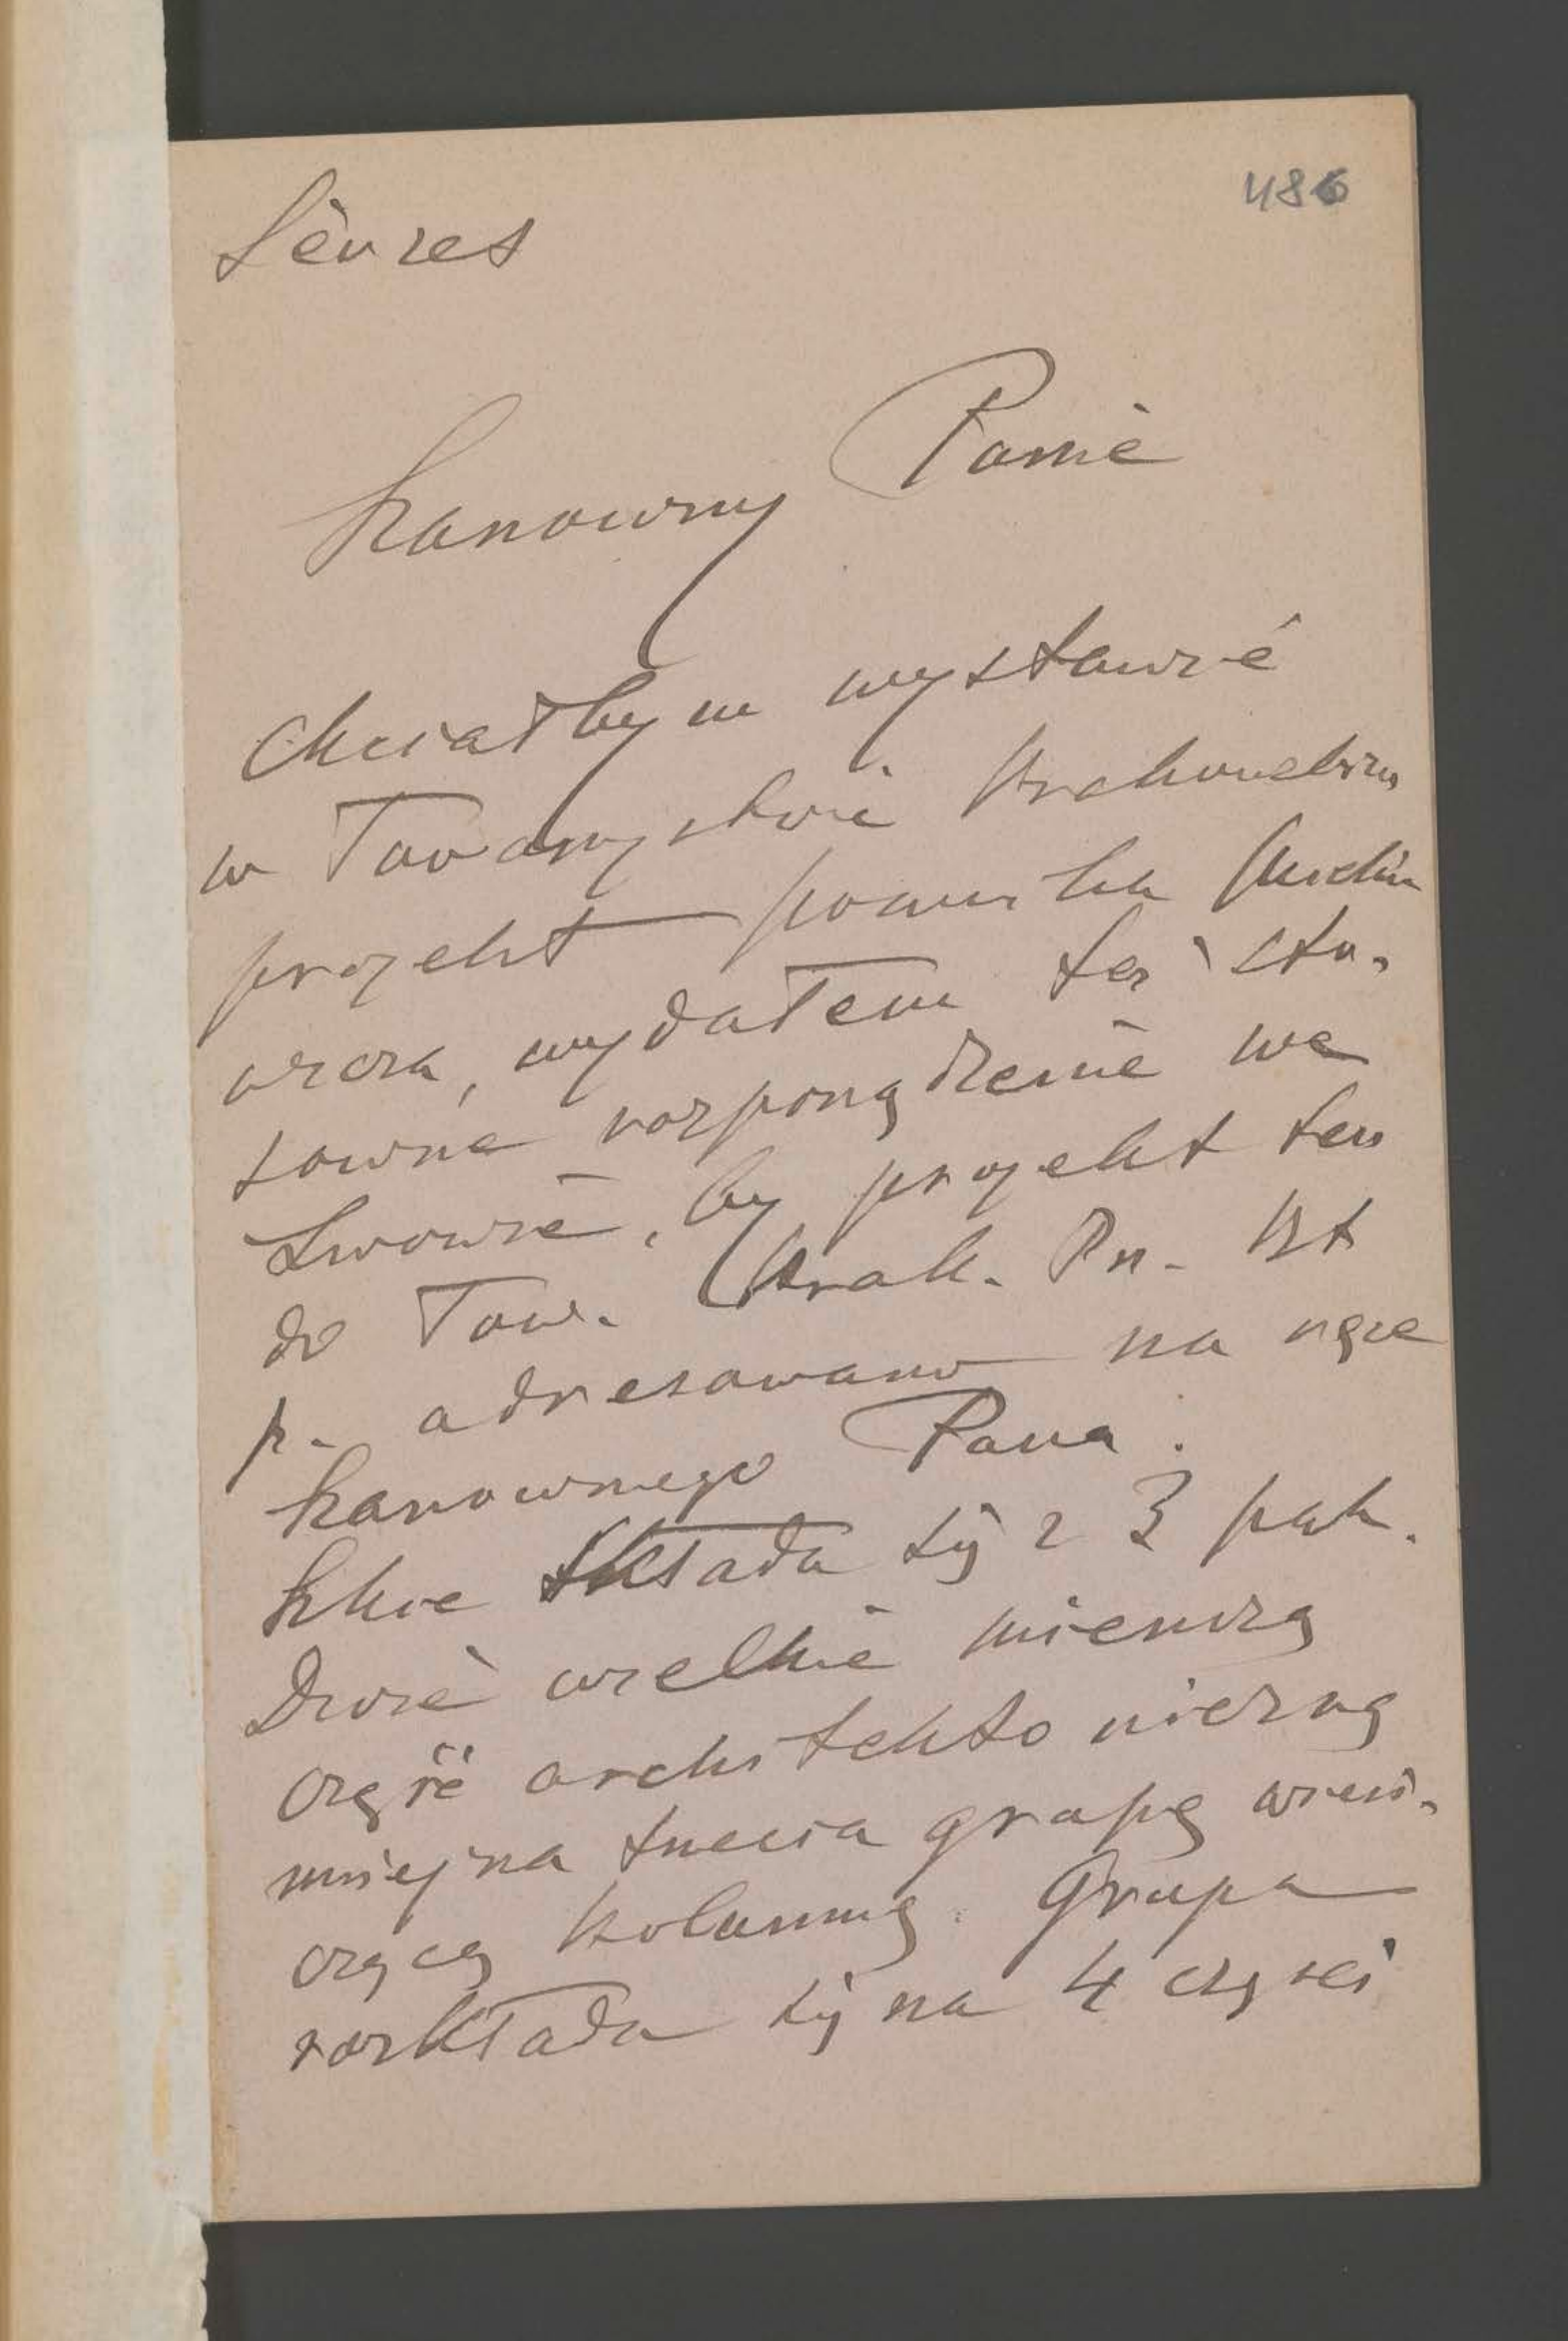 486
Sèvres
Szanowny Panie
Chciałbym wystawić
w Towarzystwie Krakowskim
projekt pomnika Mickie
wicza, wydałem też sto-
sowne rozporządzenie we
Lwowie, by projekt ten
do Tow. Krak. Prz. Szt
p. adresowano na ręce
Szanownego Pana.
Szkic składa się z 3 pak.
Dwie wielkie mieszczą
część architektoniczną
mniejsza trzecia grupę wień-
czącą kolumnę. Grupa
rozkłada się na 4 części